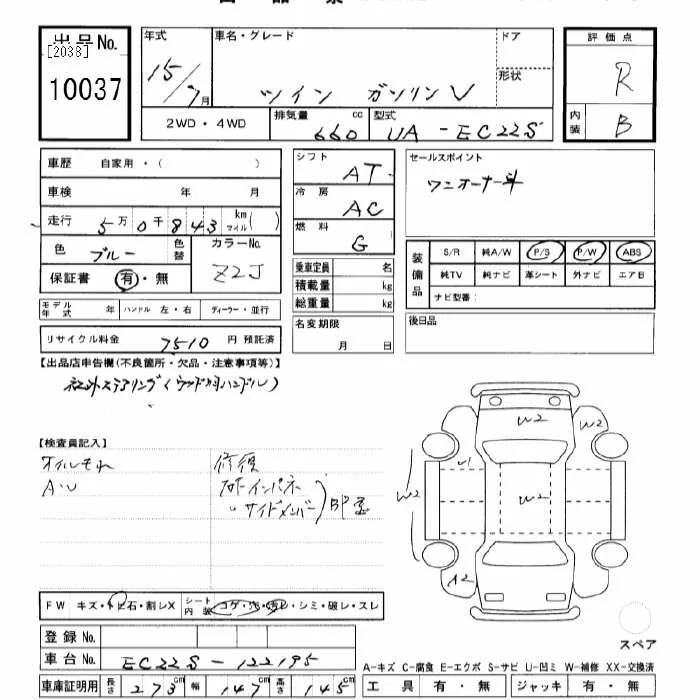 出品No.
[2038]
10037
年式
15/7月
車名・グレード
ツイン ガソリンV
ドア
形状
評価点
R
内装
B
2WD・4WD
排気量
660 cc
型式
UA-EC22S
車歴 自家用・( )
車検 年 月
走行 5万0千843 km マイル( )
色 ブルー 色替
カラーNo. Z2J
保証書 有・無
シフト AT
冷房 AC
燃料 G
乗車定員 名
積載量 kg
総重量 kg
セールスポイント
ワンオーナー車
装備品
S/R 純A/W P/S P/W ABS
純TV 純ナビ 革シート 外ナビ エアB
ナビ型番:
モデル年式 年 ハンドル 左・右 ディーラー・並行
名変期限 月 日
後日品
リサイクル料金 7510 円 預託済
【出品店申告欄(不良箇所・欠品・注意事項等)】
社外ステアリング(ウッド調ハンドル)
【検査員記入】
オイルモレ
A・U
修復
サイドメンバー
W2
W2
U1
W2
W2
W2
A2
FW キズ・トビ石・割レX
シート内装 コゲ・穴・汚レ・シミ・破レ・スレ
スペア
登録No.
車台No. EC22S-122195
車庫証明用 長さ 273 cm 幅 147 cm 高さ 145 cm
A-キズ C-腐食 E-エクボ S-サビ U-凹ミ W-補修 XX-交換済
工具 有・無 ジャッキ 有・無